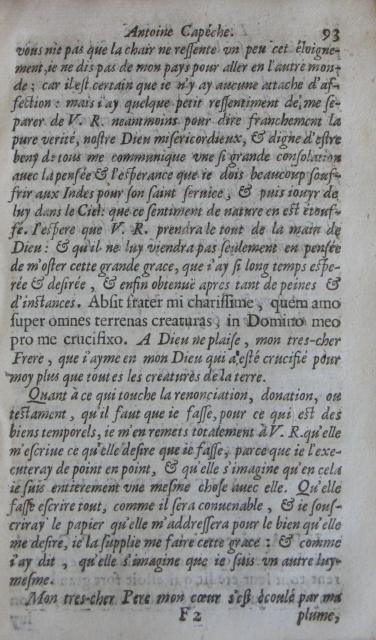 Antoine Capêche. 93
vous nie pas que la chair ne ressente vn peu cet éloigne-
ment, ie ne dis pas de mon pays pour aller en l'autre mon-
de ; car il est certain que ie n'y ay aucune attache d'af-
fection : mais i'ay quelque petit ressentiment de, me se-
parer de V. R. neantmoins pour dire franchement la
pure verité, nostre Dieu misericordieux, & digne d'estre
beny de tous me communique vne si grande consolation
auec la pensée & l'esperance que ie dois beaucoup souf-
frir aux Indes pour son saint seruice, & puis iouyr de
luy dans le Ciel: que ce sentiment de nature en est étouf-
fé. I'espere que V. R. prendra le tout de la main de
Dieu : & qu'il ne luy viendra pas seulement en pensée
de m'oster cette grande grace, que i'ay si long temps espe-
rée & desirée, & enfin obtenuë apres tant de peines &
d'instances. Absit frater mi charissime, quem amo
super omnes terrenas creaturas, in Domino meo
pro me crucifixo. A Dieu ne plaise, mon tres-cher
Frere, que i'ayme en mon Dieu qui a esté crucifié pour
moy plus que toutes les creatures de la terre.
Quant à ce qui touche la renonciation, donation, ou
testament, qu'il faut que ie fasse, pour ce qui est des
biens temporels, ie m'en remets totalement à V. R. qu'elle
m'escriue ce qu'elle desire que ie fasse, parce que ie l'exe-
cuteray de point en point, & qu'elle s'imagine qu'en cela
ie suis entierement vne mesme chose auec elle. Qu'elle
fasse escrire tout, comme il sera conuenable, & ie sous-
criray le papier qu'elle m'addressera pour le bien qu'elle
me desire, ie la supplie me faire cette grace : & comme
i'ay dit, qu'elle s'imagine que ie suis vn autre luy-
mesme.
Mon tres-cher Pere mon cœur s'est écoulé par ma
F 2 plume,